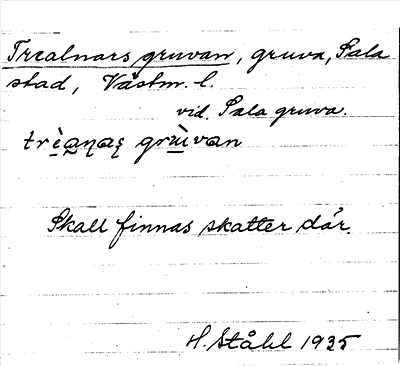 Trealnars gruvan, gruva, Sala
stad, Västm. l.
vid. Sala gruva.
gruvan
Skall finnas skatter där.
H. Ståhl 1935